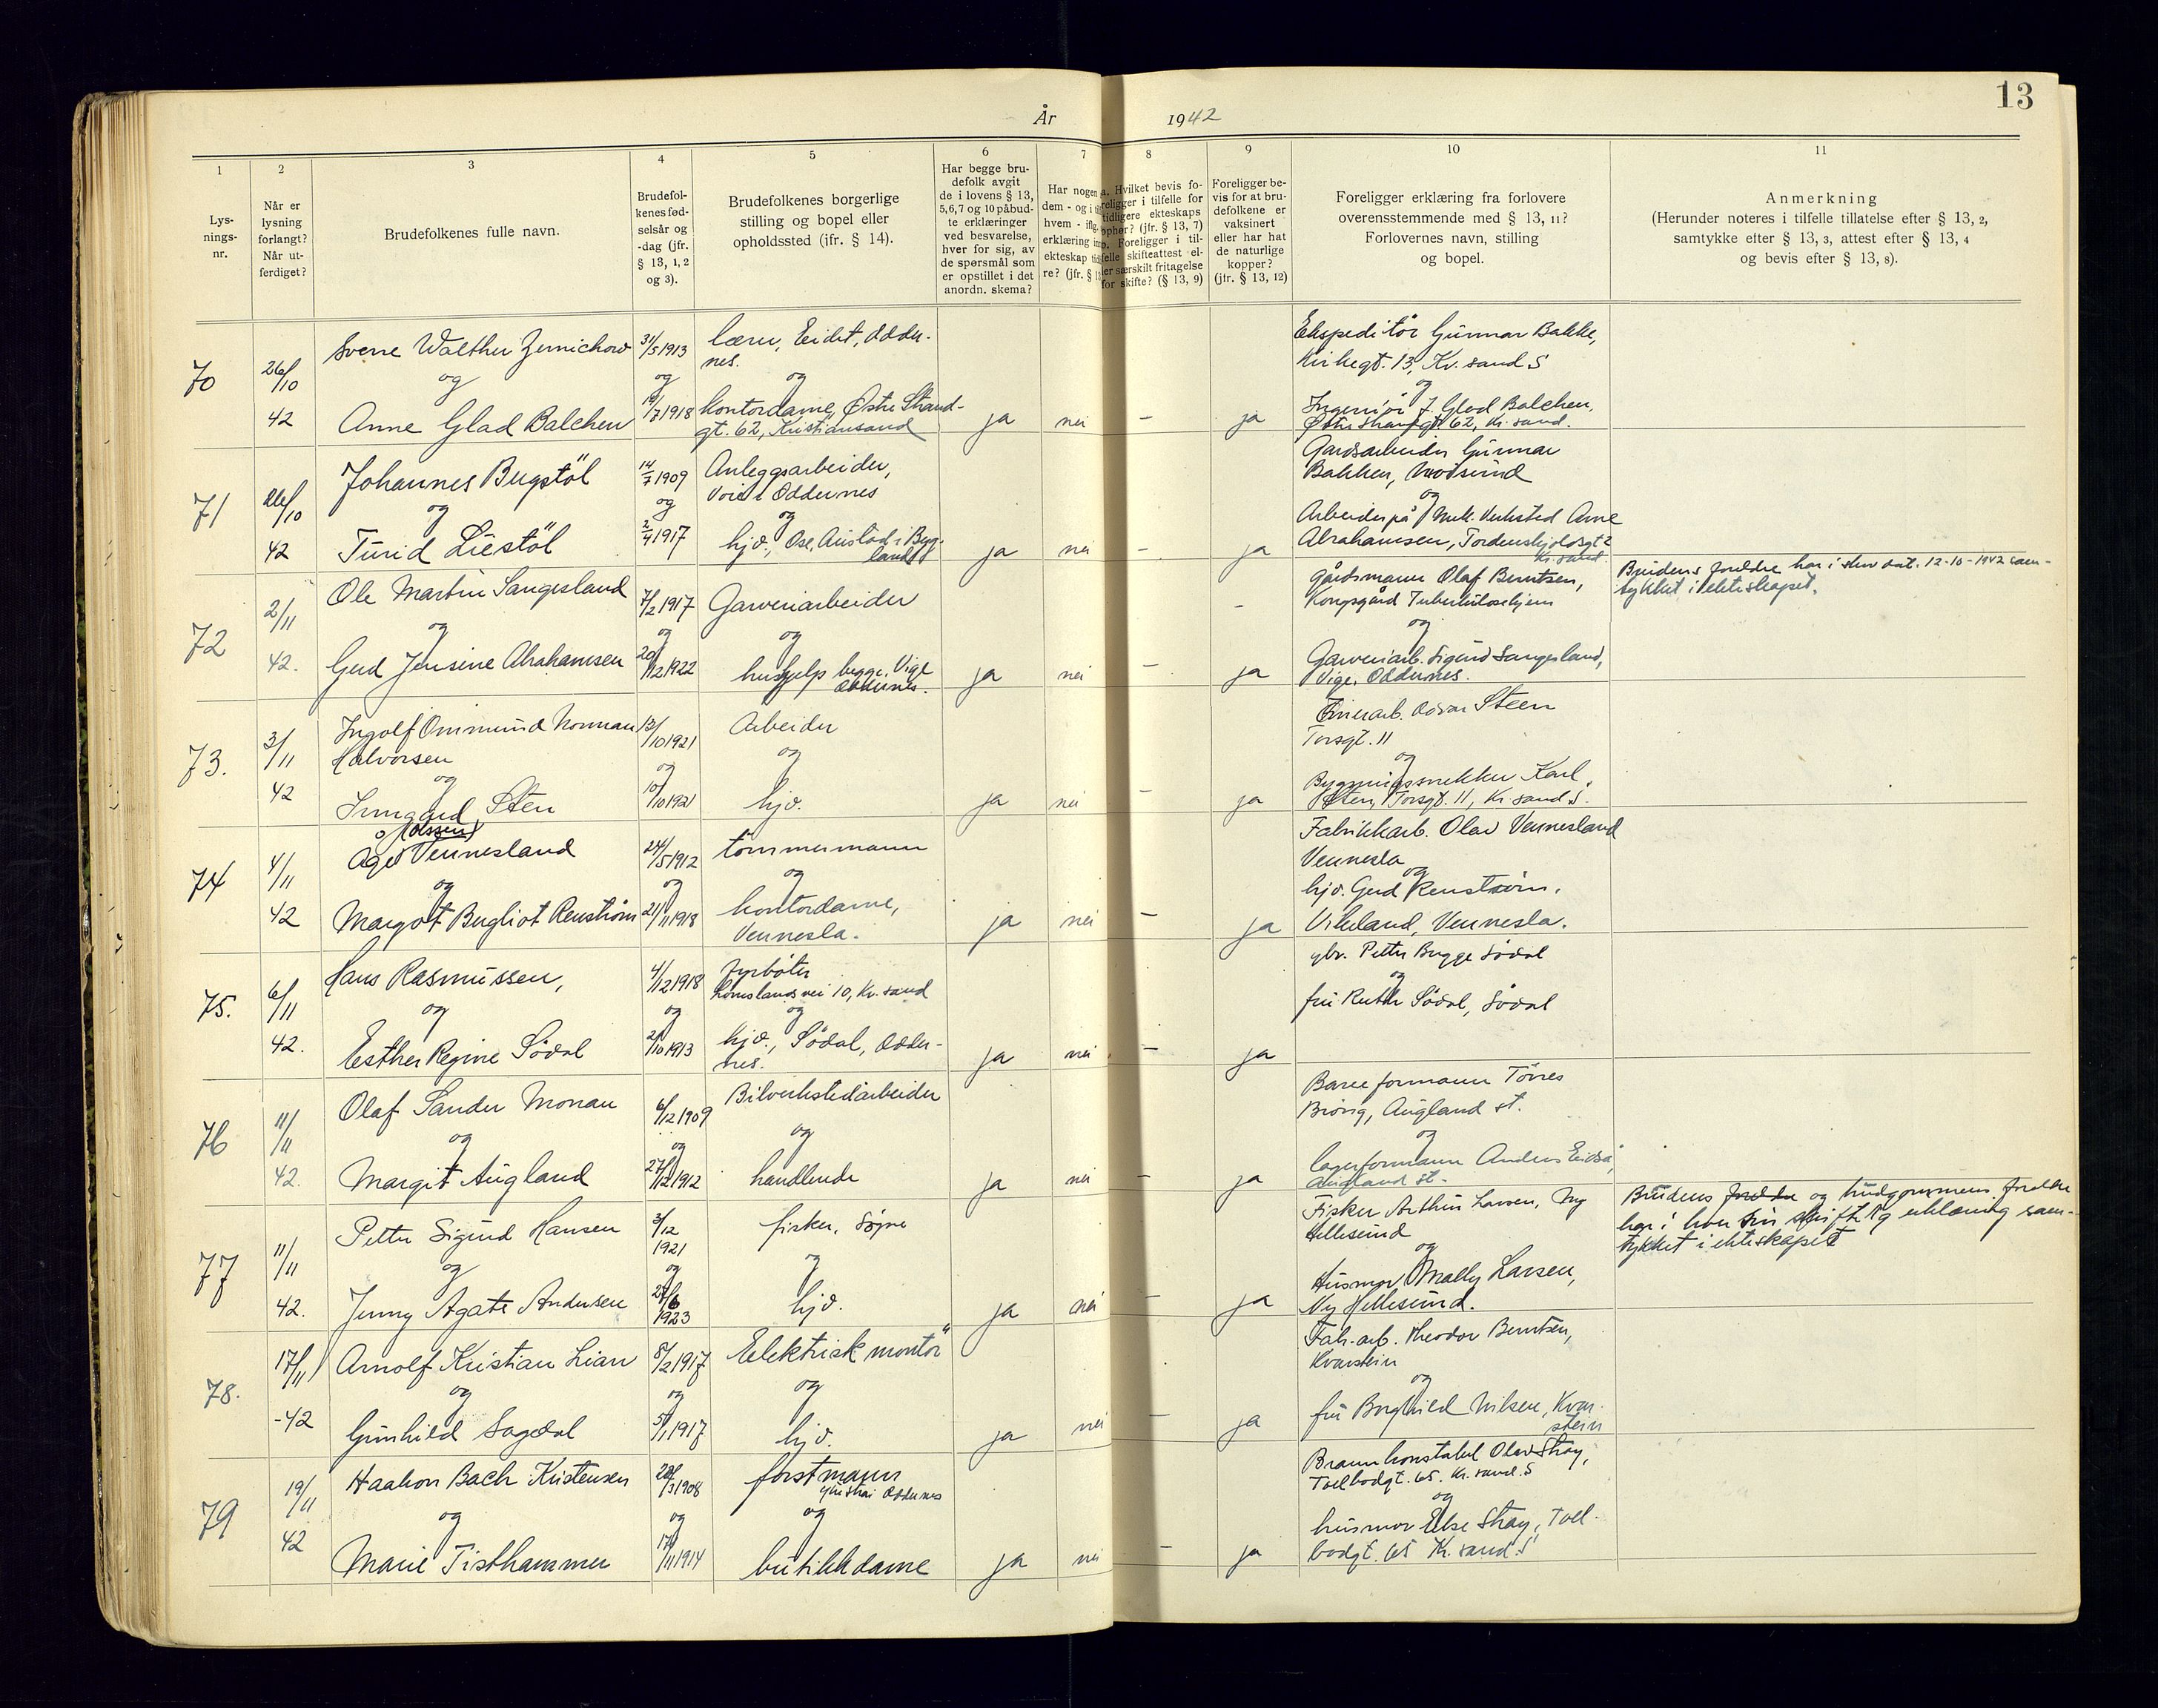 År 1942
13
1
Lys-
nings-
nr.
2
Når er
lysning
forlangt?
Når ut-
ferdiget?
3
Brudefolkenes fulle navn.
4
Brudefol-
kenes fød-
selsår og
-dag (jfr.
§ 13, 1, 2
og 3).
5
Brudefolkenes borgerlige
stilling og bopel eller
opholdssted (jfr. § 14).
6
Har begge bru-
defolk avgit
de i lovens § 13,
5, 6, 7 og 10 påbud-
te erklæringer
ved besvarelse,
hver for sig, av
de spørsmål som
er opstillet i det
anordn. skema?
7
Har nogen
dem - og i
hvem - ifl.
erklæring
ekteskap
re? (jfr. §
8
a. Hvilket bevis fo-
religger i tilfelle for
tidligere ekteskaps
ophør? (jfr. § 13, 7)
Foreligger i til-
felle skifteattest el-
ler særskilt fritagelse
for skifte? (§ 13, 9)
9
Foreligger be-
vis for at bru-
defolkene er
vaksinert
eller har hat
de naturlige
kopper?
(jfr. § 13, 12)
10
Foreligger erklæring fra forlovere
overensstemmende med § 13, 11?
Forlovernes navn, stilling
og bopel.
11
Anmerkning
(Herunder noteres i tilfelle tillatelse efter § 13, 2,
samtykke efter § 13, 3, attest efter § 13, 4
og bevis efter § 13, 8).
70
26/10
42
Sverre Walther Zernichow
og
Anne Glad Balchen
31/5 1913
og
/7 1918
lærer, Eidet, Odder-
nes.
og
kontordame, Østre Strand-
gt. 62, Kristiansand
ja
nei
-
ja
Ekspeditör Gunnar Bakke,
Kirkegt. 13, Kr.sand S
og
Ingeniör J. Glad Balchen,
Østre Strandgt 62, Kr. sand.
71
26/10
42
Johannes Bugstöl
og
Turid Liestöl
14/7 1909
og
2/4 1917
Anleggsarbeider,
Voie i Oddernes
og
hjv., Ose, Austad i Byg-
land
ja
nei
-
ja
Gardsarbeider Gunnar
Bakken, Mosvind
og
Arbeider på Mek. Verksted Arne
Abrahamsen, Tordenskjoldsgt 2
Kr. sand
72
2/11
42.
Ole Martin Sangesland
og
Gerd Jensine Abrahamsen
7/2 1917
og
20/12 1922
Garveriarbeider
og
hushjelp begge, Vige
Oddernes.
ja
nei
-
ja
gårdsmann Olaf Berntsen,
Kongsgård Tuberkulosehjem
og
Garveriarb. Sigurd Sangesland,
Vige, Oddernes.
Brudens foreldre har i skriv dat. 12-10-1942 sam-
tykket i ekteskapet.
73.
3/11
42
Ingolf Ommund Norman
Halvorsen
og
Irmgard Sten
13/10 1921
og
10/10 1921
Arbeider
og
hjv.
ja
nei
-
ja
Finerarb. Odvar Steen
Torsgt. 11
og
Bygningssnekker Karl
Sten, Torsgt. 11, Kr sand S.
74
4/11
42
(Olssen)
Åge Vennesland
og
Margot Bergliot Renström
24/5 1912
og
21/11 1918
tömmermann
og
kontordame,
Vennesla.
ja
nei
-
ja
Fabrikkarb. Olav Vennesland
Vennesla
og
hjv. Gerd Renström,
Vikeland, Vennesla.
75.
6/11
42.
Hans Rasmussen,
og
Esther Regine Södal
4/12 1918
og
2/10 1913
fyrböter
Lömslands vei 10, Kr. sand
og
hjv., Södal, Odder-
nes.
ja
nei
-
ja
gbr. Petter Brygge Södal
og
fru Ruth Södal, Södal
76
11/11
42.
Olaf Sander Monan
og
Margit Augland
6/12 1909
og
27/12 1912
Bilverkstedarbeider
og
handlende
ja
nei
-
ja
Baneformann Törres
Brövig, Augland st.
og
lagerformann Anders Eidså,
Augland st.
77
11/11
42.
Petter Sigurd Hansen
og
Jenny Agate Andersen
3/12
1921
og
24/6
1923
fisker, Sögne
og
hjv.
ja
nei
-
ja
Fisker Arthur Larsen, Ny
Hellesund
og
Husmor Mally Larsen,
Ny Hellesund.
Brudens foreldre og brudgommens foreldre
har i hver sin skriftlig erklæring sam-
tykket i ekteskapet
78.
17/11
-42
Arnolf Kristian Lian
og
Gunhild Sagedal
8/2 1917
og
5/1 1917
Elektrisk montör
og
hjv.
ja
nei
-
ja
Fab.-arb. Theodor Berntsen,
Kvarstein
og
fru Borghild Nilsen, Kvar-
stein
79
19/11
42
Haakon Bach Kristensen
og
Marie Tisthammer
28/3 1908
og
17/11 1914
forstmann
Oddernes
og
butikkdame
ja
nei
-
ja
Brannkonstabel Olav Stray,
Tollbodgt. 65. Kr. sand. S
og
husmor Else Stray, Toll-
bodgt. 65 Kr. sand. S